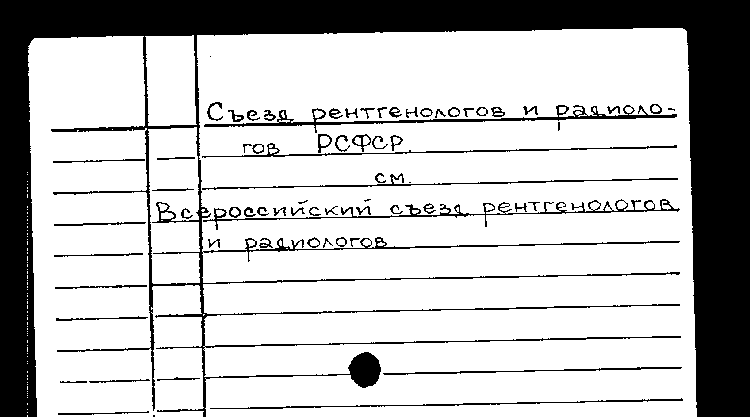 Съезд рентгенологов и радиоло-
гов РСФСР
см
Всероссийский съезд рентгенологов
и радиологов